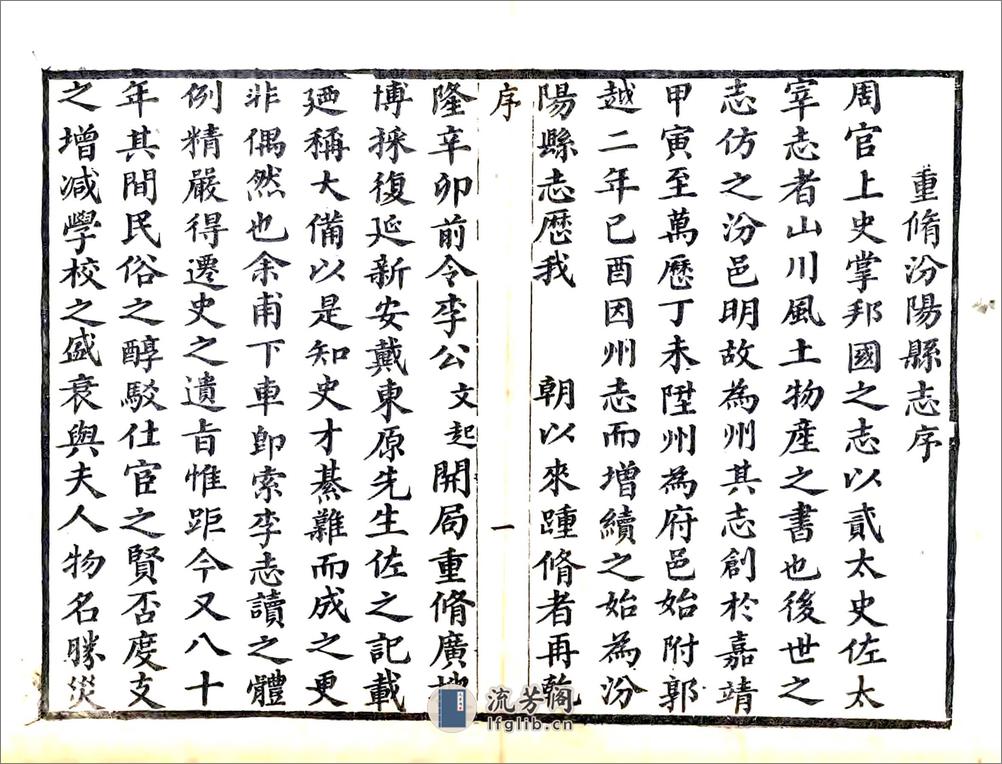 重脩汾陽縣志序
周官上史掌邦國之志以貳太史佐太
宰志者山川風土物産之書也後世之
志仿之汾邑明故為州其志創於嘉靖
甲寅至萬厯丁未陞州為府邑始附郭
越二年已酉因州志而增續之始為汾
陽縣志歷我　　朝以來踵脩者再乾
序
一
隆辛卯前令李公文起開局重脩廣搜
博採復延新安戴東原先生佐之記載
廼稱大備以是知史才綦難而成之更
非偶然也余甫下車卽索李志讀之體
例精嚴得遷史之遺㫖惟距今又八十
年其間民俗之醇駁仕宦之賢否度支
之增减學校之盛衰與夫人物名勝災
流芳阁
lfglib.cn